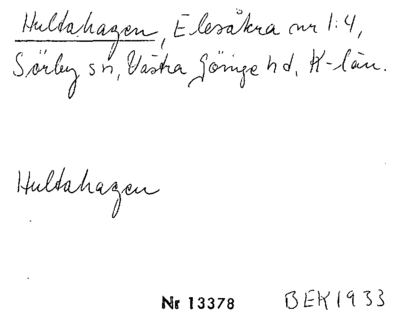 Hultahagen, Elesåkra nr 1:4,
Sörby sn, Västra Göinge hd, K-län.
Hultahagen
Nr 13378 BEK1933